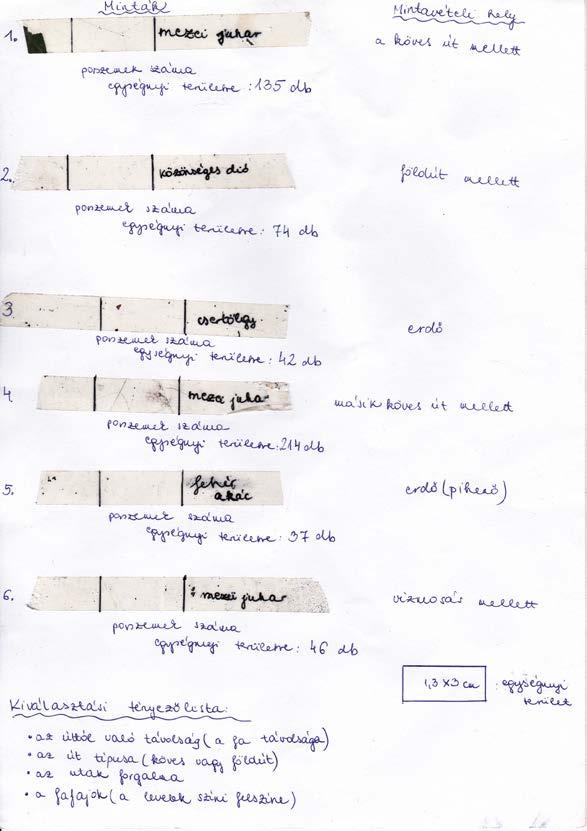 Minták
Mintavételi hely
1. mezei juhar
a köves út mellett
porszemek száma
egységnyi területre: 135 db
2. közönséges dió
földút mellett
porszemek száma
egységnyi területre: 74 db
3. csertölgy
erdő
porszemek száma
egységnyi területre: 42 db
4. mezei juhar
másik köves út mellett
porszemek száma
egységnyi területre: 214 db
5. fehér
akác
erdő (pihenő)
porszemek száma
egységnyi területre: 37 db
6. mezei juhar
vízmosás mellett
porszemek száma
egységnyi területre: 46 db
1,3 x 3 cm : egységnyi
terület
Kiválasztási tényezőlista:
• az úttól való távolság (a fa távolsága)
• az út típusa (köves vagy földút)
• az utak forgalma
• a fafajok (a levelek színi felszíne)